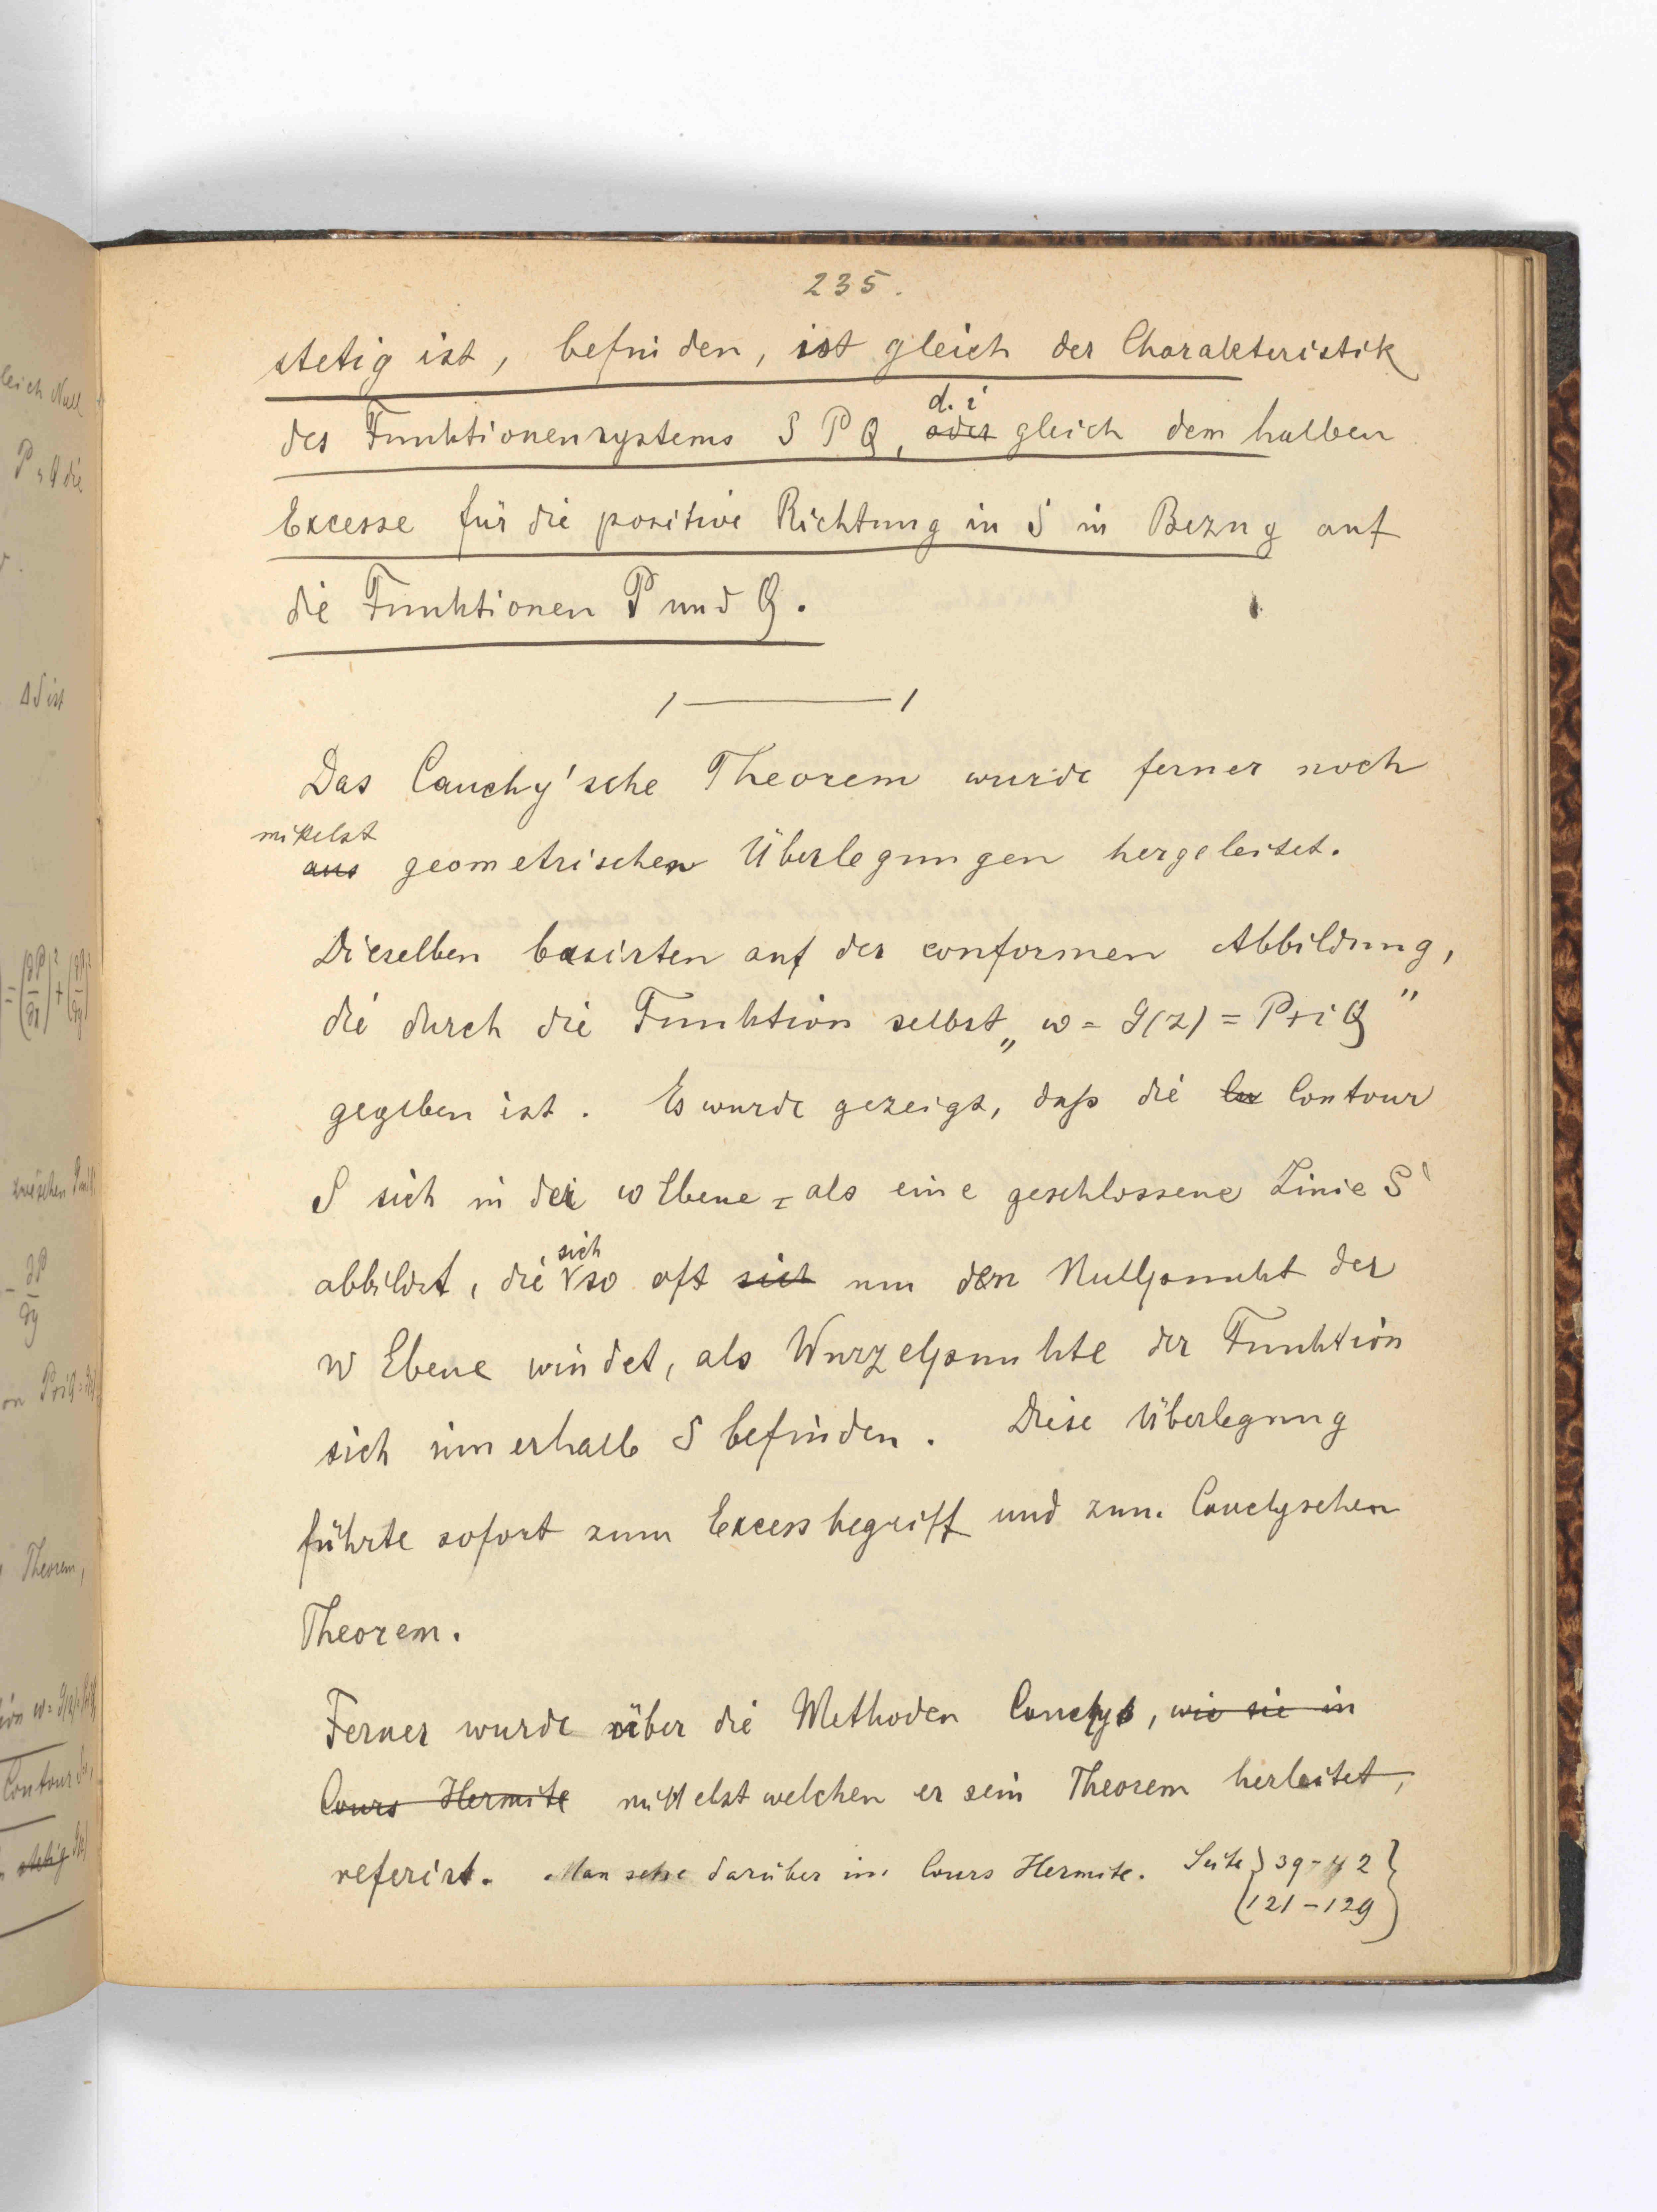 235.
stetig ist, befinden, ist gleich der Charakteristik
des Funktionensystems S P Q, d. i oder gleich dem halben
Excesse für die positive Richtung in S in Bezug auf
die Funktionen P und Q.
Das Cauchy'sche Theorem wurde ferner noch
mittelst
aus geometrischen Überlegungen hergeleitet.
Dieselben basirten auf der conformen Abbildung,
die durch die Funktion selbst „ w = f(z) = P+iQ "
gegeben ist. Es wurde gezeigt, daß die Contour
S sich in der w Ebene als eine geschlossene Linie S'
abbildet, die sich so oft sich um den Nullpunkt der
w Ebene windet, als Wurzelpunkte der Funktion
sich innerhalb S befinden. Diese Überlegung
führte sofort zum Excessbegriff und zum Cauchyschen
Theorem.
Ferner wurde über die Methoden Cauchys, wie sie in
Cours Hermite mittelst welchen er sein Theorem herleitet,
referirt. Man sehe darüber im Cours Hermite. Seite } 39-42 }
(121-129)
leich Null
P & Q die
ΔS ist
zwischen
∂P
∂y
Theorem,
Contour
stetig